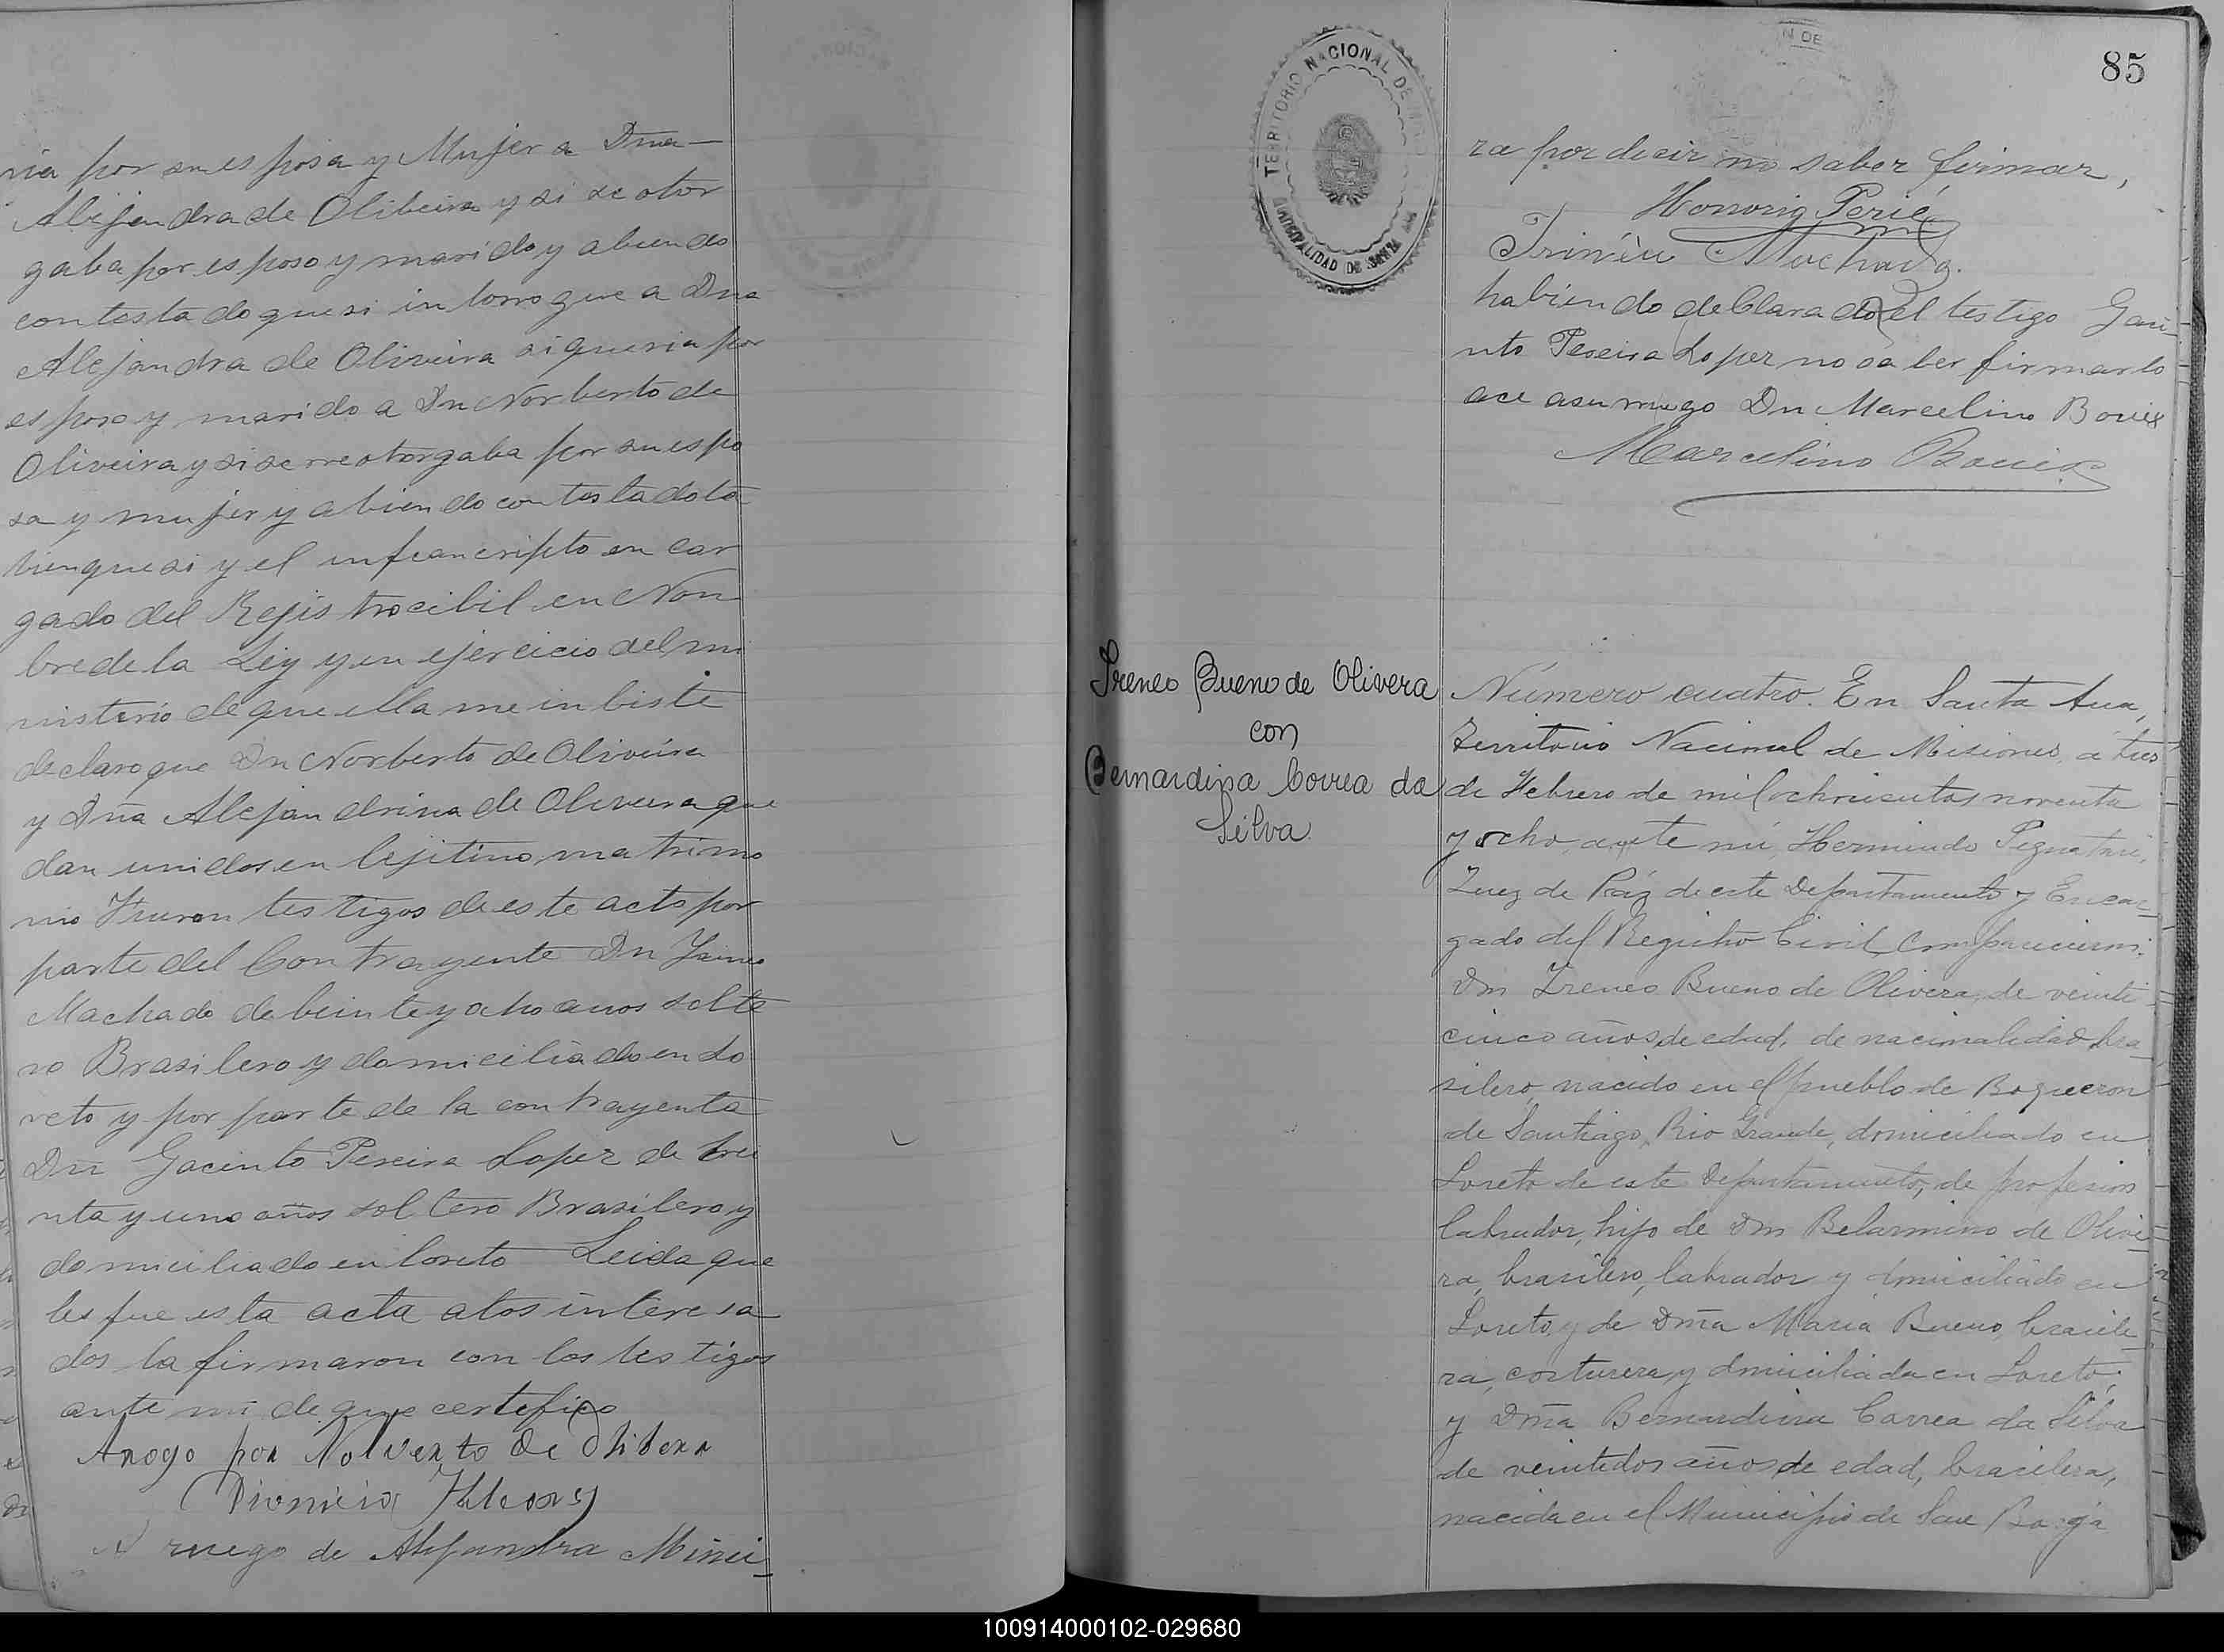 ria por su esposa y Mujer a Dma—
Alejandra de Olibeira y si se otor
gaba por esposo y marido y abiendo
contestado que si intorrogue a Dna
Alejandra de Oliveira si queria por
esposo y marido a Dn Norberto de
Oliveira y si se me otorgaba por su espo
sa y mujer y abiendo contestado ta
bien que si y el infrancripto en car
gado del Rejistro cibil en Non
bre de la Ley y en ejercicio del mi
nisterio de que ella me in biste
declaro que Dn Norberto de Oliveira
y Dña Alejandrina de Oliveira que
dan unidos en lejitimo matrimo
nio Fueron testigos de este acto por
parte del Contrayente Dn
Machado de beinte y ocho anos solte
ro Brasilero y domiciliado en Lo
reto y por parte de la contrayenta
Dn Gacinto Pereira Lopez de trei
nta y uno años soltero Brasilero y
domiciliado en loreto Leida que
les fue esta acta a los interesa
dos la firmaron con los testigos
ante mi de que certefico
Arogo por Nolverto de Olibera
A ruego de Alejandra
TERRITORIO NACIONAL DE
MUNICIPALIDAD DE SANTA ANA
85
ra por decir no saber firmar,
Honorio Perié
Machado.
habiendo declarado el testigo Gaci
nto Pereira Lopez no saber firmar lo
ace a su ruego Dn Marcelino Bouix
Marcelino Bouix
Ireneo Bueno de Olivera
con
Bernardina Correa da
Silva
Número cuatro. En Santa Ana,
Territorio Nacional de Misiones, á tres
de Febrero de mil ochocientos noventa
y ocho, ante mí, Hermindo
Juez de Páz de este Departamento y Encar-
gado del Registro Civil, comparecieron:
Dn Ireneo Bueno de Olivera, de veinti-
cinco años de edad, de nacionalidad bra-
silero, nacido en el pueblo de Boqueron
de Santiago, Rio Grande, domiciliado en
Loreto de este Departamento, de profesion
labrador, hijo de Dn Belarmino de Olive-
ra, brasilero, labrador y domiciliado en
Loreto, y de Dña Maria Bueno, brasile-
ra, costurera y domiciliada en Loreto;
y Dña Bernardina Correa da Silva
de veintedos años de edad, brasilera,
nacida en el Municipio de San Borja
100914000102-029680